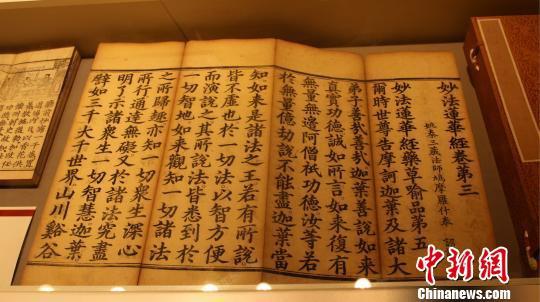 妙法蓮華經卷第三
姚秦三藏法師鳩摩羅什奉
妙法蓮華經藥草喻品第五
爾時世尊告摩訶迦葉及諸大
弟子善哉善哉迦葉善說如來
真實功德誠如所言如來復有
無量無邊阿僧祇功德汝等若
於無量億劫說不能盡迦葉當
知如來是諸法之王若有所說
皆不虛也於一切法以智方便
而演說之其所說法皆悉到於
一切智地如來觀知一切諸法
之所歸趣亦知一切衆生深心
所行通達無礙又於諸法究盡
明了示諸衆生一切智慧迦葉
譬如三千大千世界山川谿谷
中新网
Chinanews.com